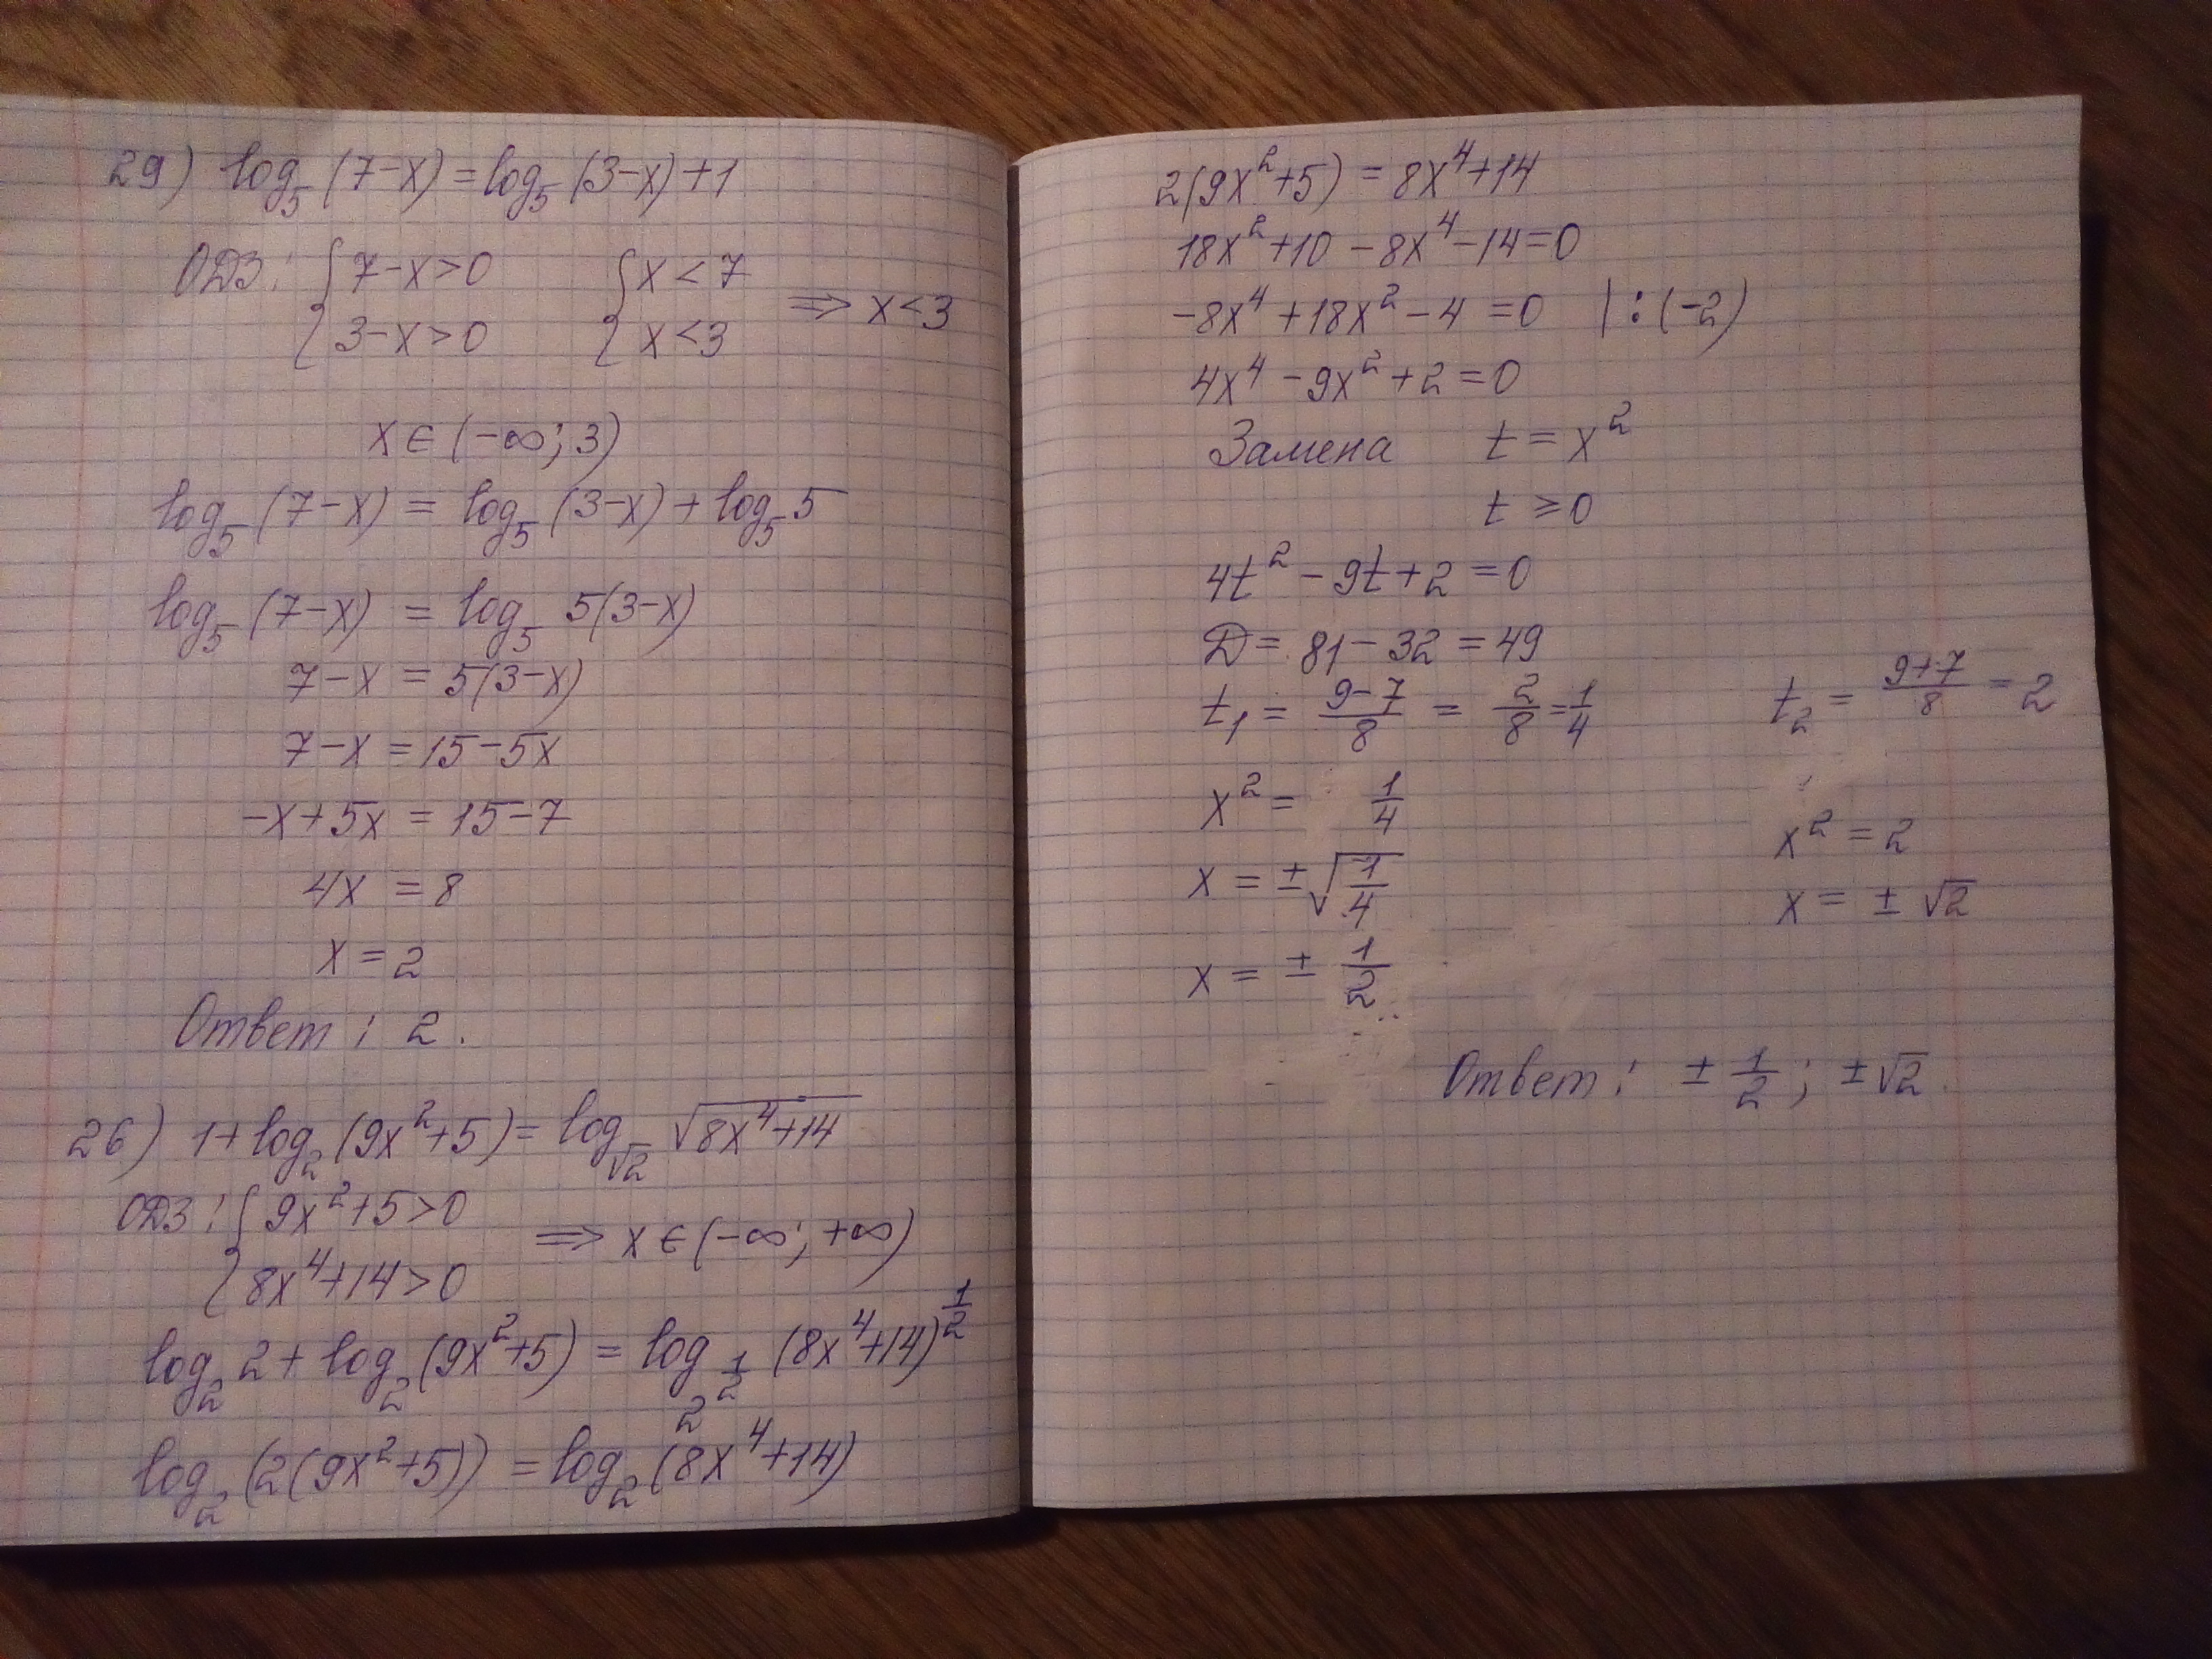 29) log₅(7-x)=log₅(3-x)+1
ОДЗ: { 7-x>0 { x<7
{ 3-x>0 { x<3 => x<3
x∈(-∞; 3)
log₅(7-x) = log₅(3-x)+log₅5
log₅(7-x) = log₅ 5(3-x)
7-x = 5(3-x)
7-x = 15-5x
-x+5x = 15-7
4x = 8
x = 2
Ответ: 2.
26) 1+log₂(9x²+5)= log_√2 √(8x⁴+14)
ОДЗ: { 9x²+5>0
{ 8x⁴+14>0 => x∈(-∞; +∞)
log₂2+log₂(9x²+5) = log_2^(1/2) (8x⁴+14)^(1/2)
log₂(2(9x²+5)) = log₂(8x⁴+14)
2(9x²+5) = 8x⁴+14
18x²+10-8x⁴-14=0
-8x⁴+18x²-4=0 |:(-2)
4x⁴-9x²+2=0
Замена t = x²
t ≥ 0
4t²-9t+2=0
Д= 81-32=49
t₁ = (9-7)/8 = 2/8 = 1/4 t₂ = (9+7)/8 = 2
x² = 1/4 x² = 2
x = ±√(1/4) x = ±√2
x = ± 1/2
Ответ: ± 1/2; ±√2.